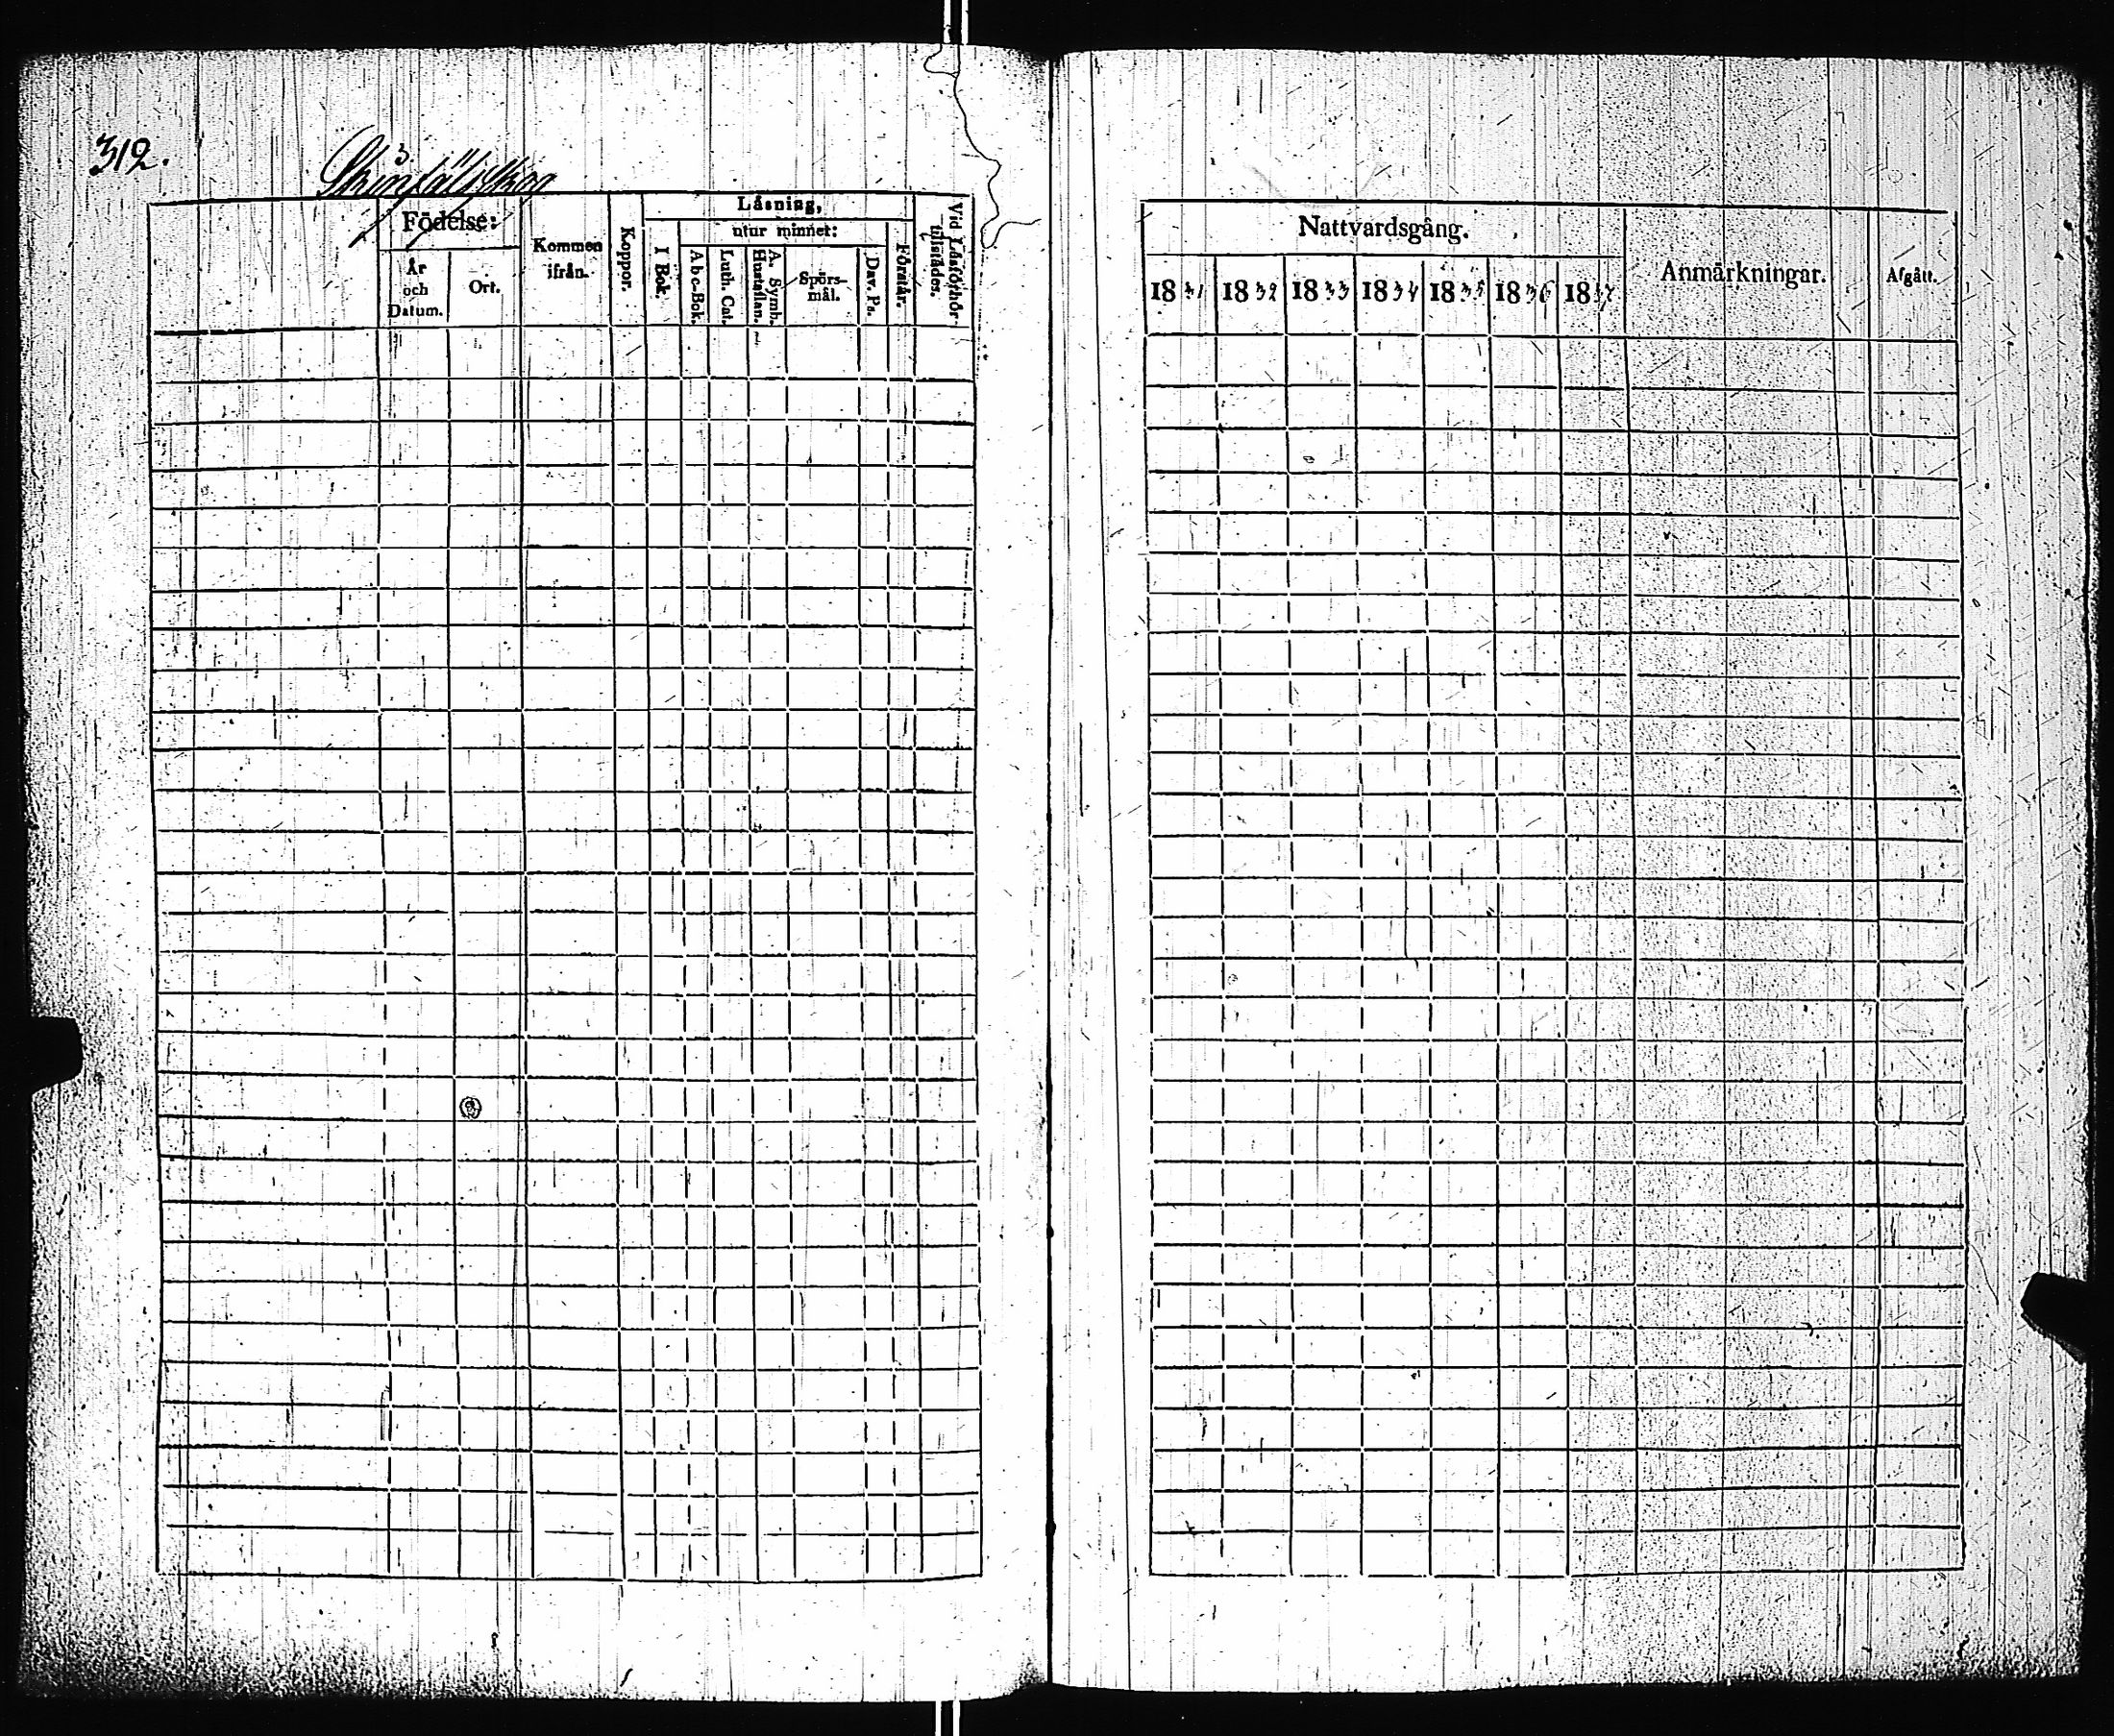 312.
Födelse:
År och Datum.
Ort.
Kommen ifrån.
Koppor.
Läsning,
I Bok.
utur minnet:
Abc-Bok.
Luth. Cat.
A. Symb. Hustaflan.
Spörs-mål.
Dav. Ps.
Förstår.
Vid Läsförhör tillstädes.
Nattvardsgång.
1831 1832 1833 1834 1835 1836 1837
Anmärkningar.
Afgått.